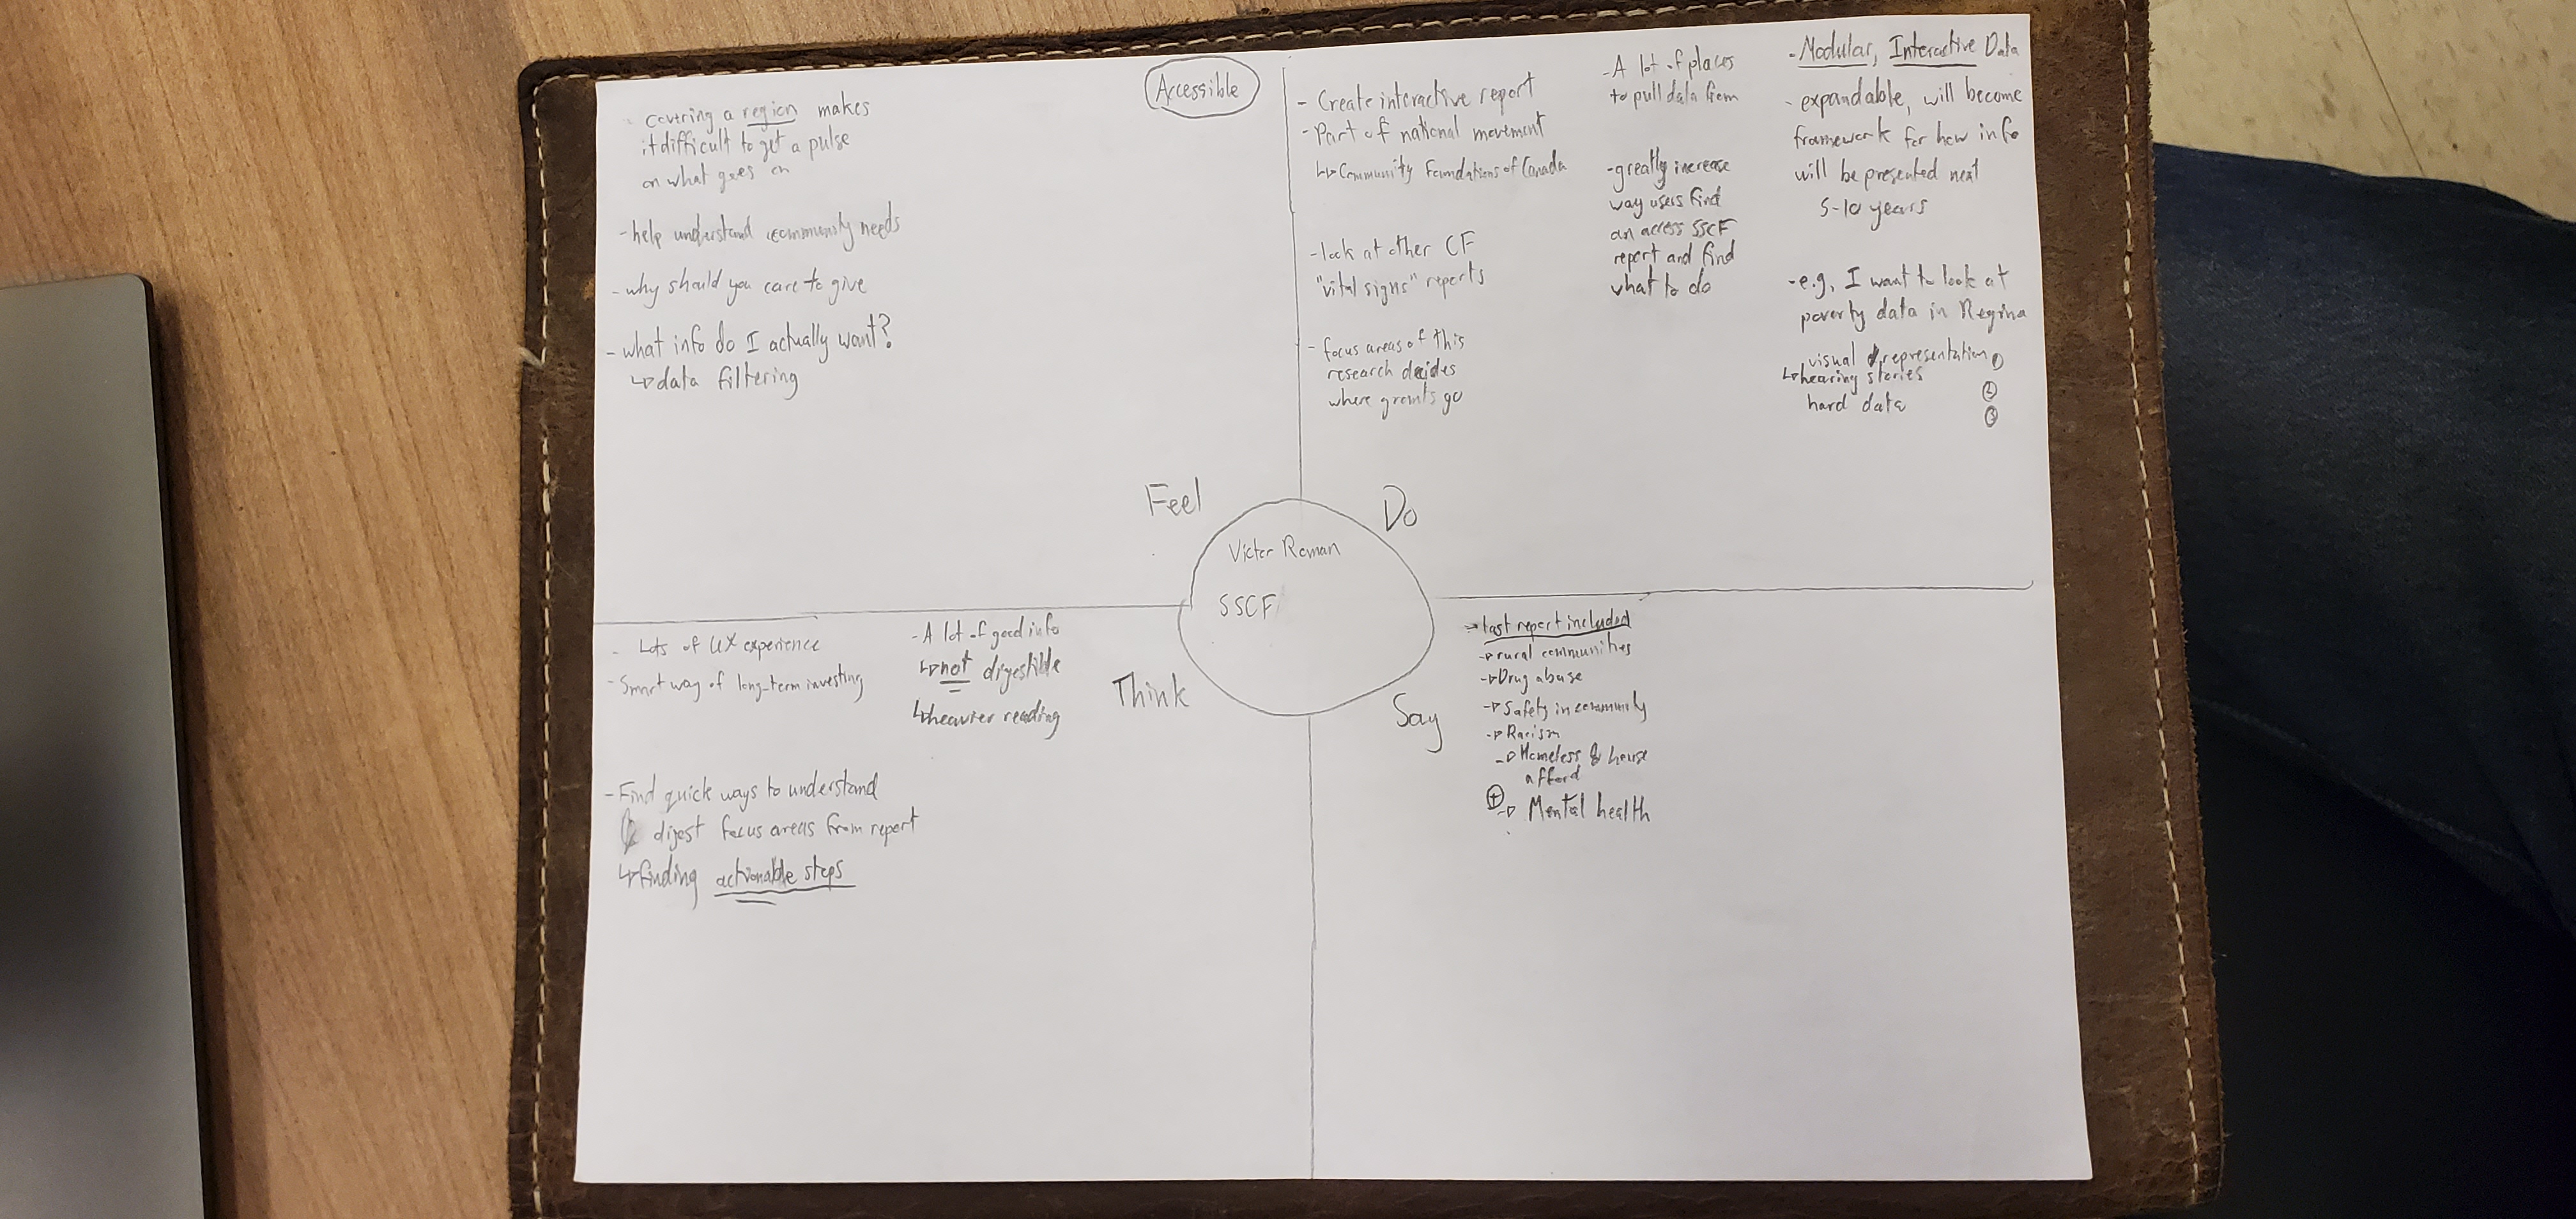 Accessible
- covering a region makes
it difficult to get a pulse
on what goes on
- help understand community needs
- why should you care to give
- what info do I actually want?
↳ data filtering
Feel
- Create interactive report
- Part of national movement
↳ Community Foundations of Canada
- look at other CF
"vital signs" reports
- focus areas of this
research decides
where grants go
- A lot of places
to pull data from
- greatly increase
way users find
an access SSCF
report and find
what to do
- Modular, Interactive Data
- expandable, will become
framework for how info
will be presented next
5-10 years
- e.g, I want to look at
poverty data in Regina
visual representation ①
↳ hearing stories ②
hard data ③
Do
Victor Roman
SSCF
- Lots of UX experience
- Smart way of long-term investing
- A lot of good info
↳ not digestible
↳ heavier reading
- Find quick ways to understand
digest focus areas from report
↳ finding actionable steps
Think
Say
→ last report included
→ rural communities
→ Drug abuse
→ Safety in community
→ Racism
→ Homeless & house
afford
⊕ → Mental health